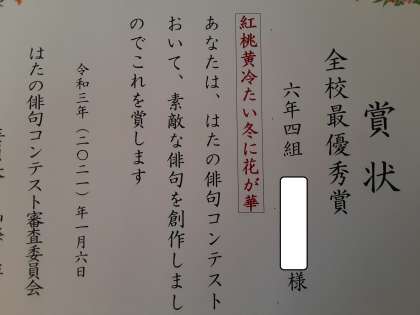 賞状
全校最優秀賞
六年四組
様
紅桃黄冷たい冬に花が華
あなたは、はたの俳句コンテスト
おいて、素敵な俳句を創作しまし
のでこれを賞します
令和三年（二〇二一）年一月六日
はたの俳句コンテスト審査委員会